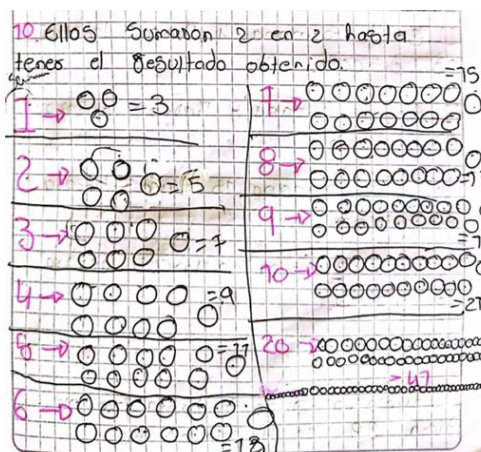 10 Ellos Sumaron 2 en 2 hasta
tener el resultado obtenido.
1 → = 3
2 → = 5
3 → = 7
4 → = 9
5 → = 11
6 → = 18
7 → = 15
8 →
9 →
10 → = 21
20 → = 41